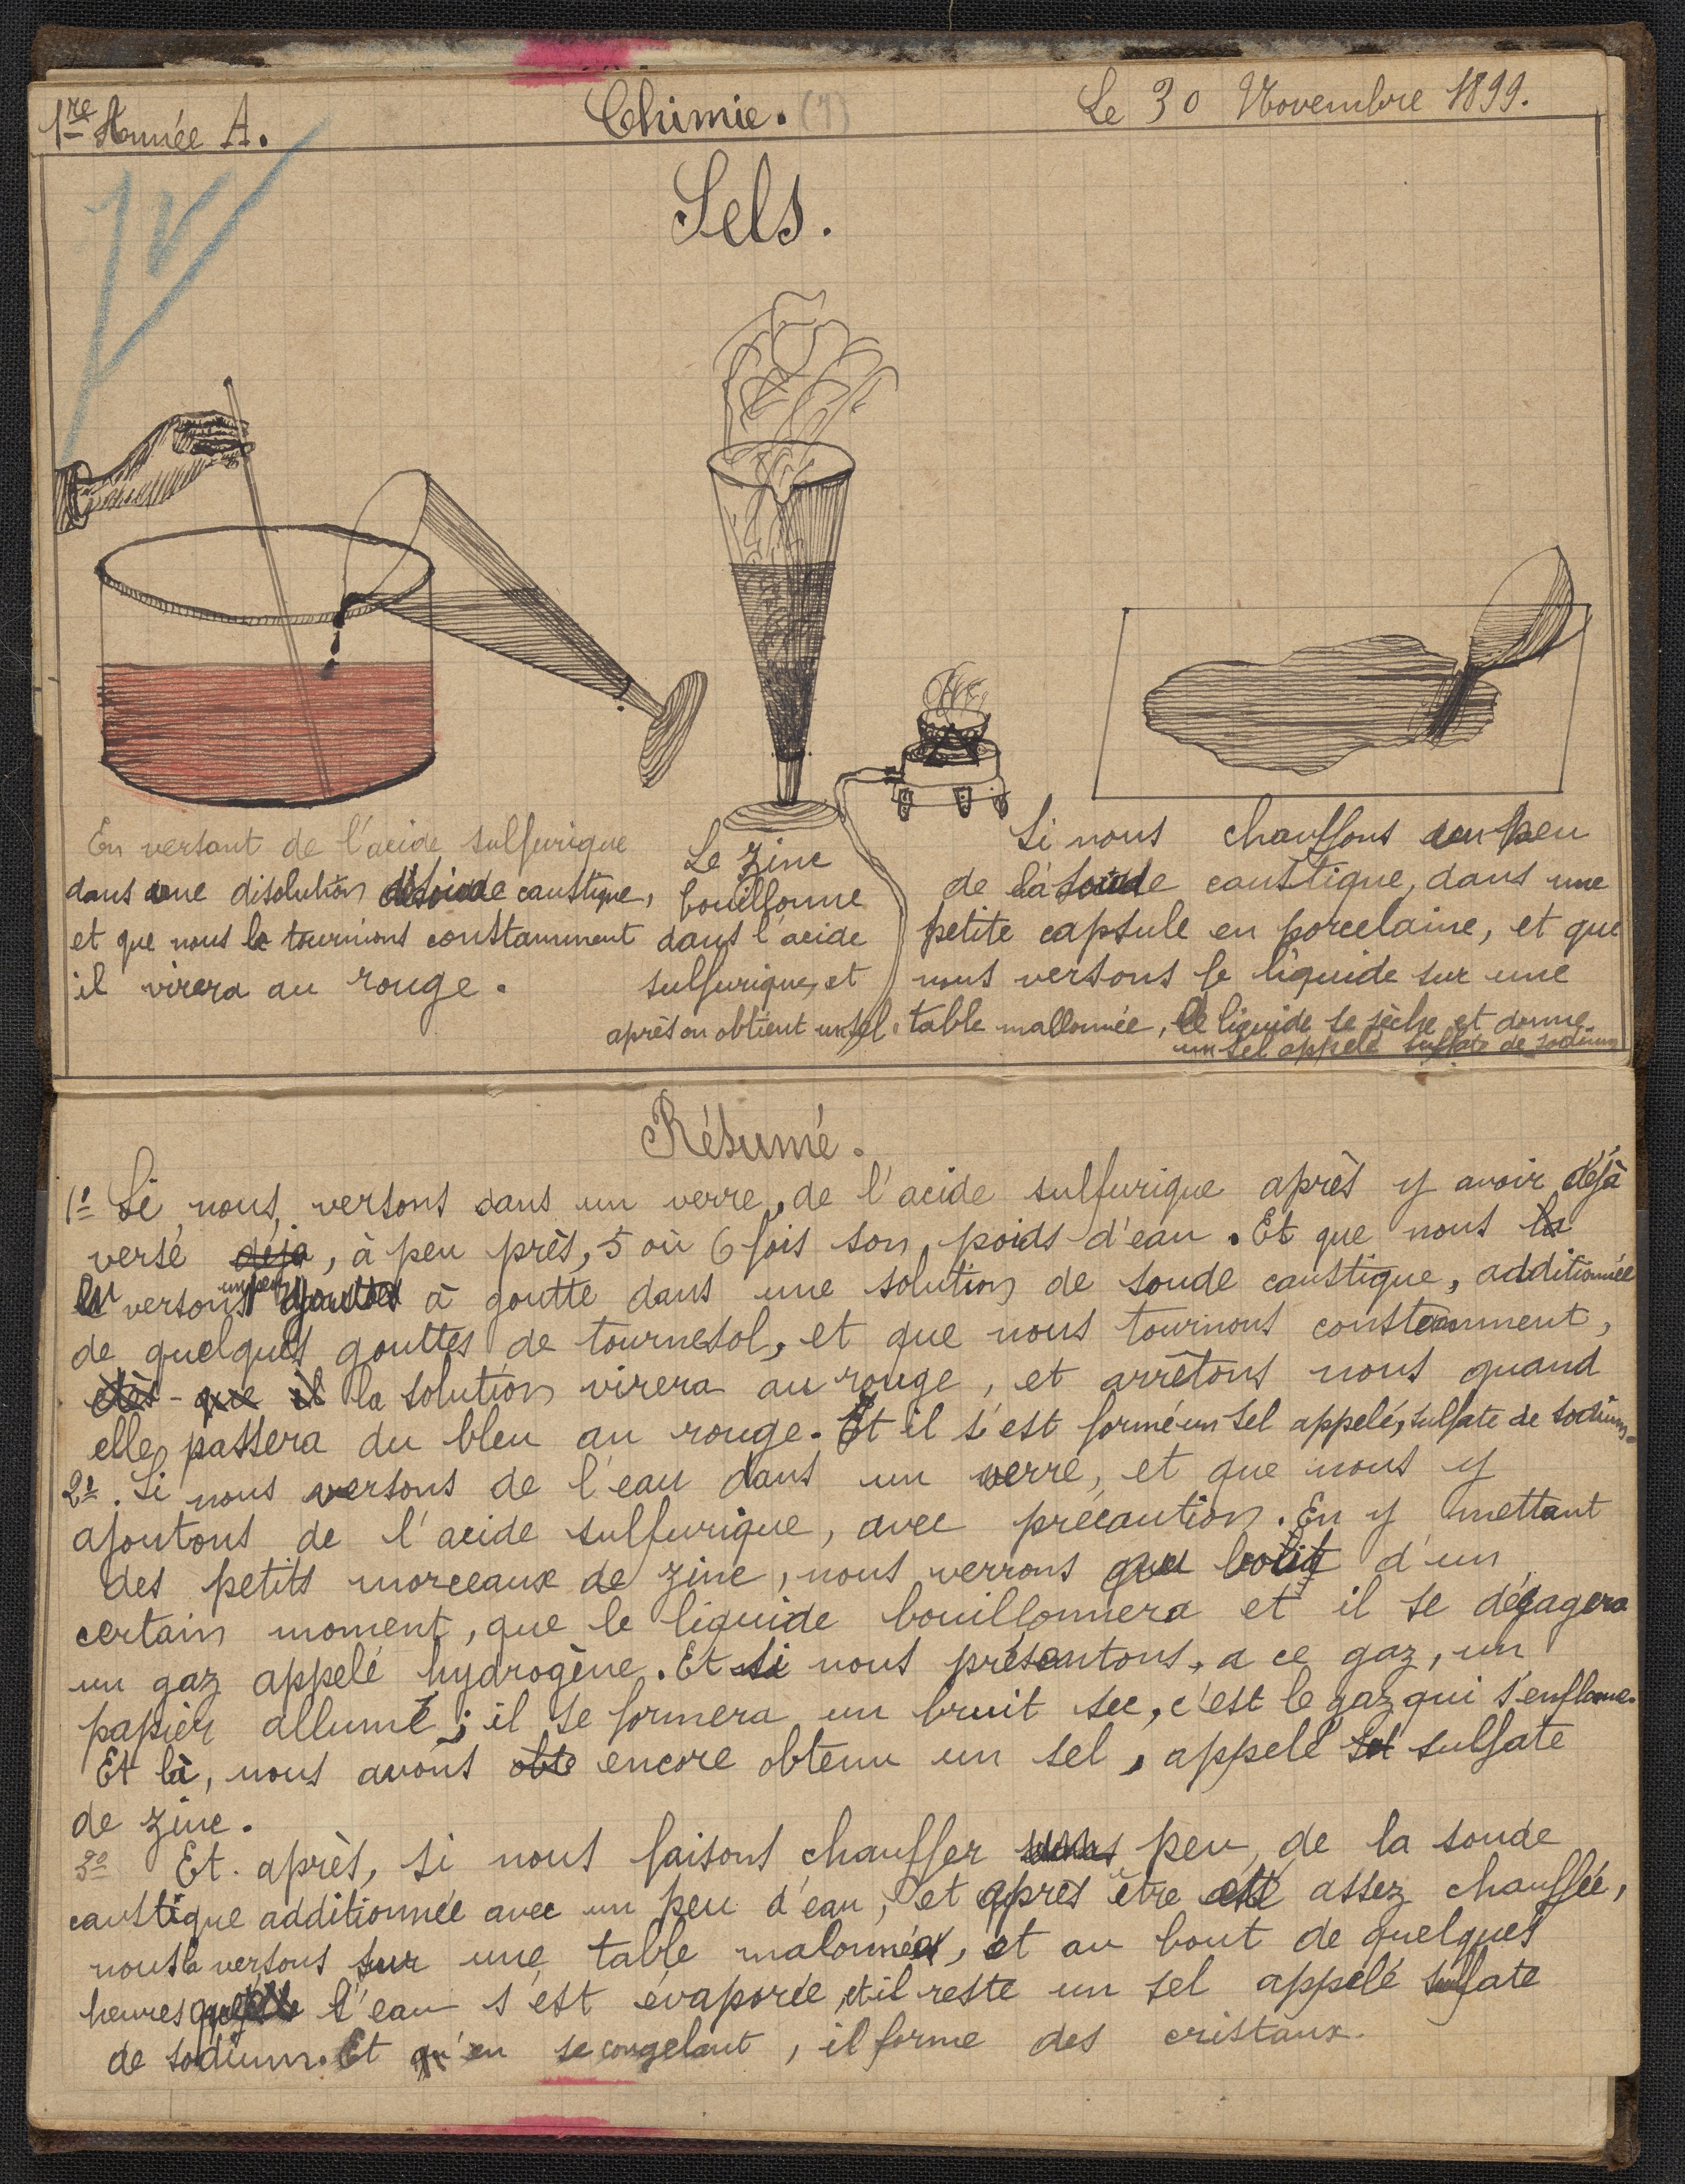 1re Année A.
Chimie. (7)
Le 30 Novembre 1899.
Sels.
En versant de l'acide sulfurique
dans une disolution de soude caustique,
et que nous le tournions constamment
il virera au rouge.
Le zinc
bouillonne
dans l'acide
sulfurique, et
après on obtient un sel.
Si nous chauffons un peu
de la soude caustique, dans une
petite capsule en porcelaine, et que
nous versons le liquide sur une
table mallonnée, le liquide se sèche et donne
un sel appelé sulfate de sodium
Résumé.
1º Si nous versons dans un verre, de l'acide sulfurique après y avoir déjà
versé déja, à peu près, 5 où 6 fois son poids d'eau. Et que nous la
versons un peu goutte à goutte dans une solution de soude caustique, additionnée
de quelques gouttes de tournesol, et que nous tournons constamment,
dès - que il la solution virera au rouge, et arrêtons nous quand
elle passera du bleu au rouge. Et il s'est formé un sel appelé, sulfate de sodium.
2º. Si nous versons de l'eau dans un verre, et que nous y
ajoutons de l'acide sulfurique, avec précaution. En y mettant
des petits morceaux de zinc, nous verrons d'un
certain moment, que le liquide bouillonnera et il se dégagera
un gaz appelé hydrogène. Et si nous présentons, a ce gaz, un
papier allumé ; il se formera un bruit sec, c'est le gaz qui s'enflame.
Et là, nous avons obte encore obtenu un sel, appelé sel sulfate
de zinc.
3º Et. après, si nous faisons chauffer peu, de la soude
caustique additionnée avec un peu d'eau, et après être été assez chauffée,
nous la versons sur une table malonnée, et au bout de quelques
heures l'eau s'est évaporée, et il reste un sel appelé sulfate
de sodium. Et qu'en se congelant, il forme des cristaux.